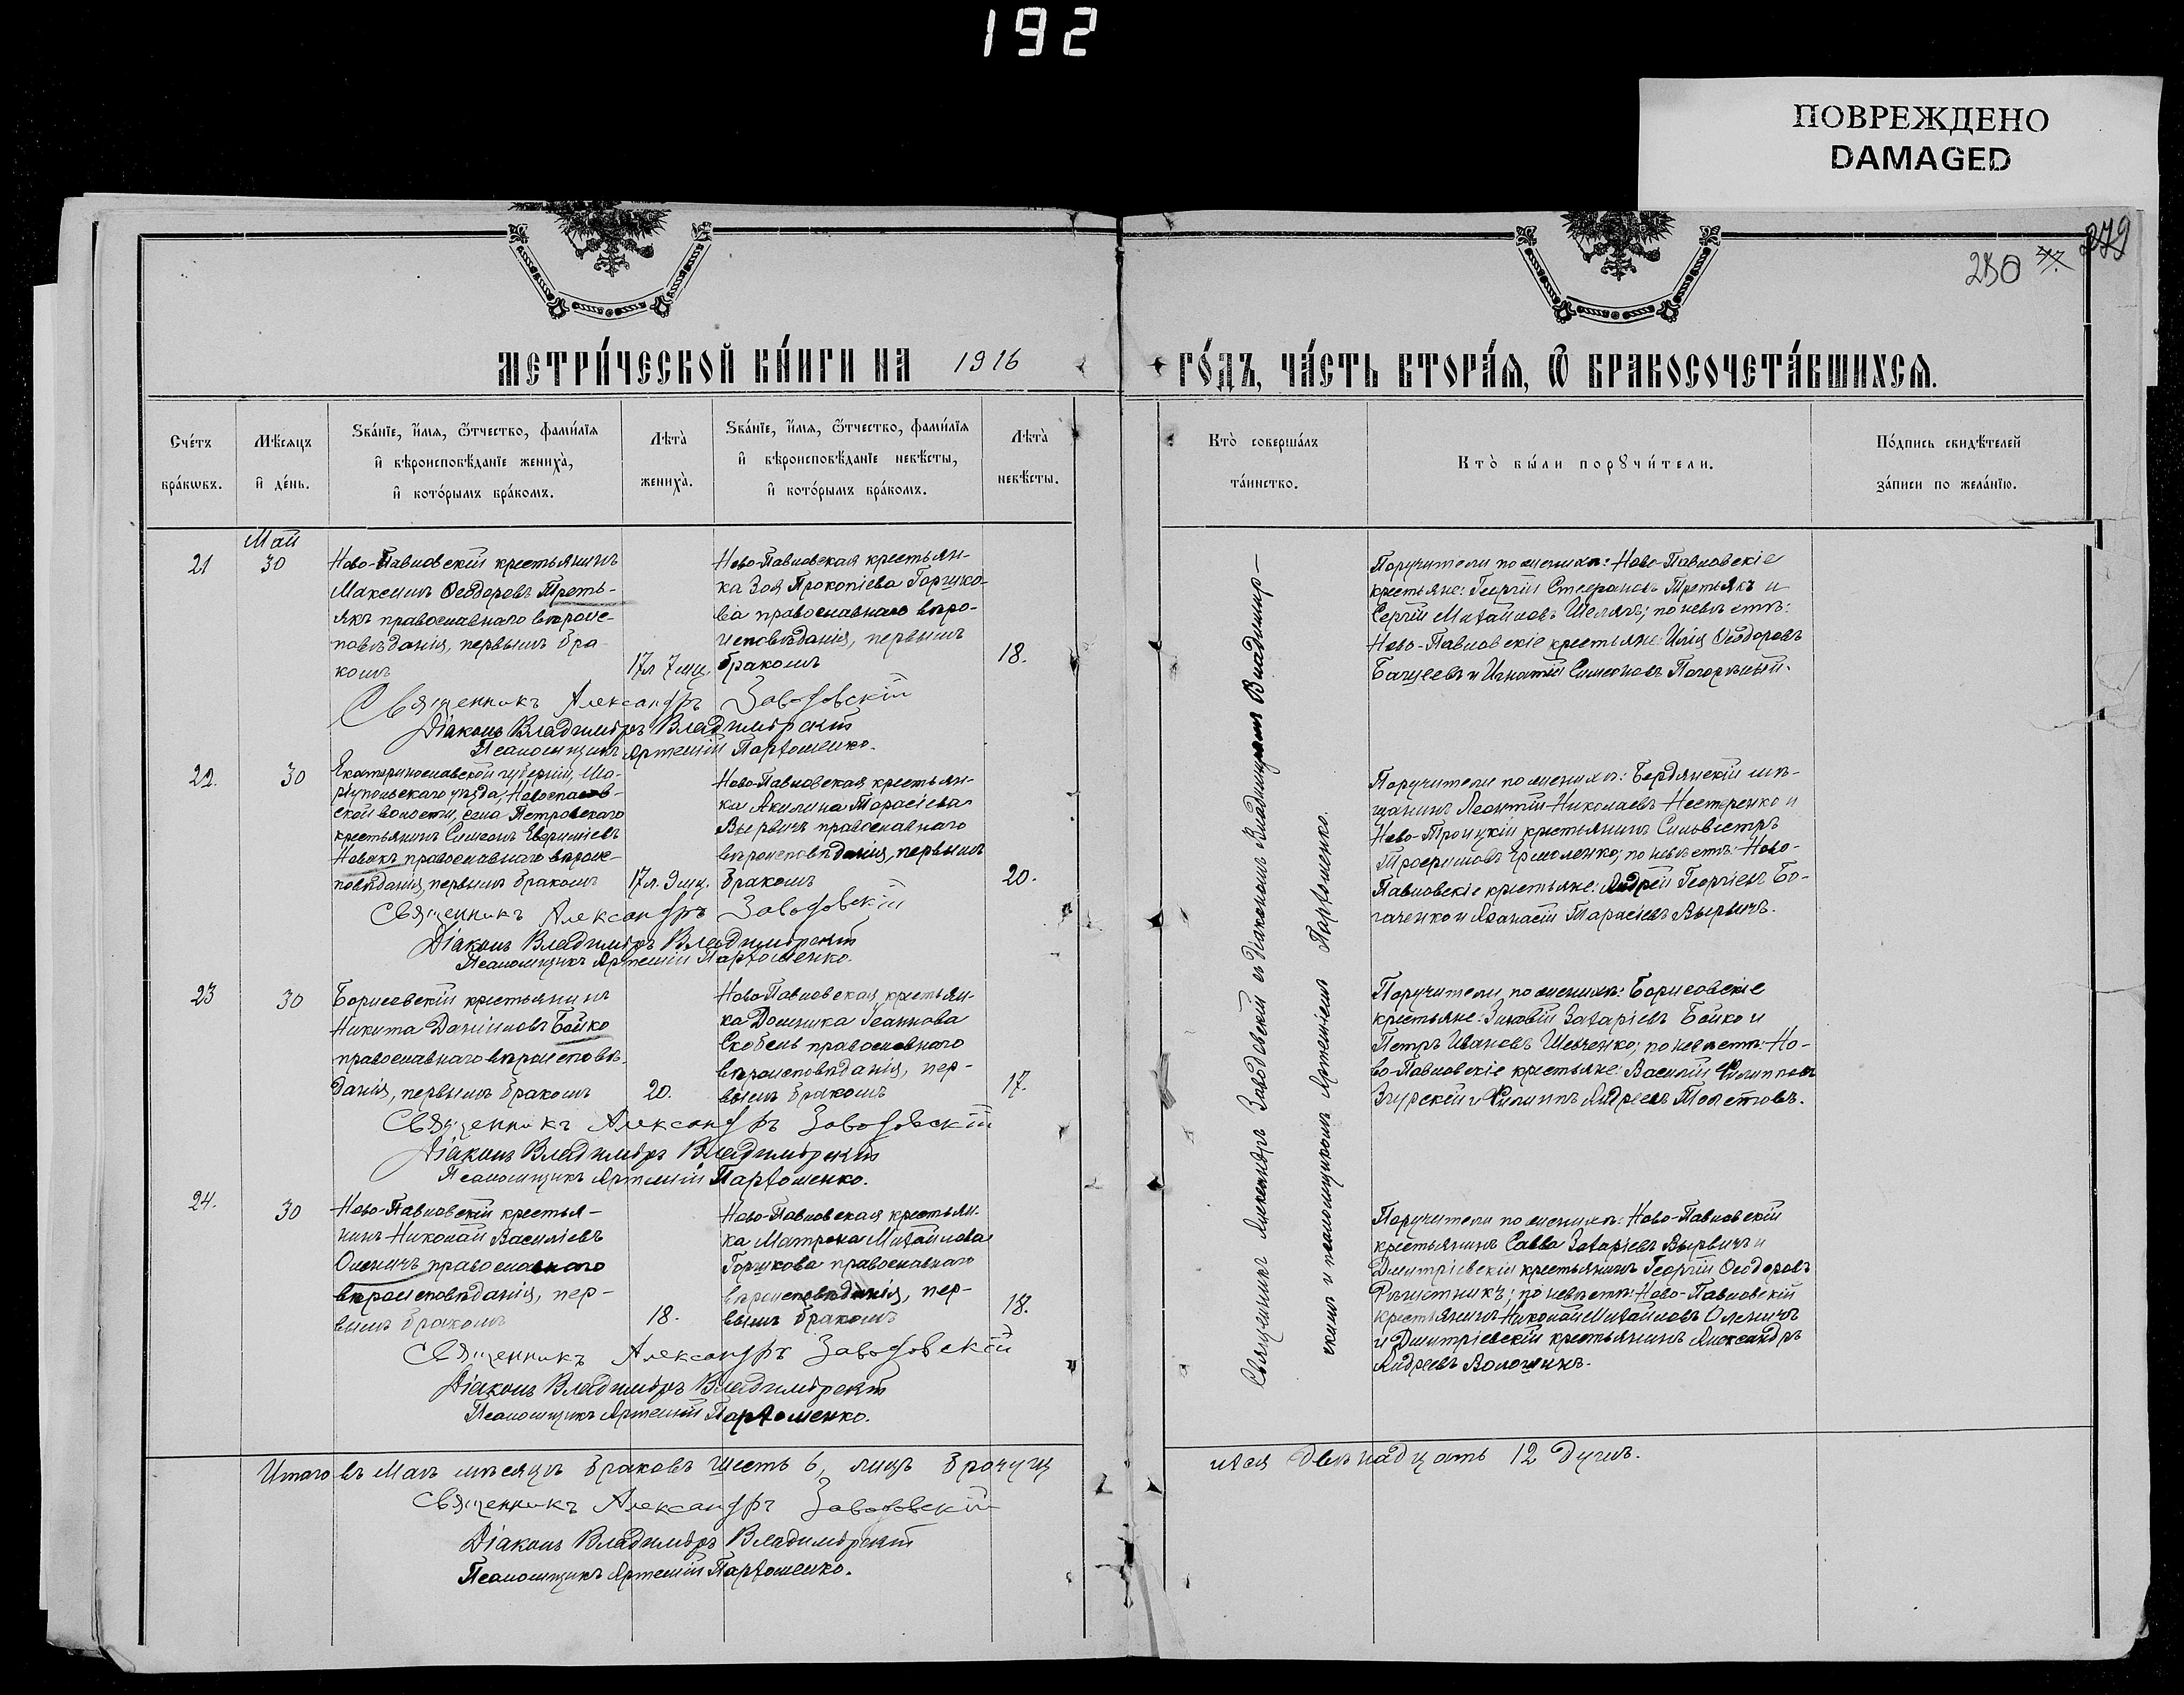 192
ПОВРЕЖДЕНО
DAMAGED
279
250
МЕТРИ́ЧЕСКОЙ КНИ́ГИ НА 1916 ГО́ДЪ, ЧА́СТЬ ВТОРА́Я, Ѿ БРАКОСОЧЕТА́ВШИХСЯ.
Сче́тъ
бра́кѡвъ.
Мѣ́сяцъ
и҆ де́нь.
Ѕва́нїе, и҆́мя, ѻ҆́тчество, фами́лїя
и҆ вѣроисповѣ́данїе жениха̀,
и҆ кото́рымъ бра́комъ.
Лѣта̀
жениха̀.
Ѕва́нїе, и҆́мя, ѻ҆́тчество, фами́лїя
и҆ вѣроисповѣ́данїе невѣ́сты,
и҆ кото́рымъ бра́комъ.
Лѣта̀
невѣ́сты.
Кто̀ соверша́лъ
та́инство.
Кто̀ бы́ли порꙋчи́тели.
По́дпись свидѣ́телей
за́писи по жела́нїю.
Май
21
30
Ново-Павловскій крестьянинъ
Максимъ Ѳеодоровъ Треть-
якъ православнаго вѣроис-
повѣданія, первымъ бра-
комъ
17л 7мц.
Ново-Павловская крестьян-
ка Зоя Прокопіева Горшко-
ва православнаго вѣро-
исповѣданія, первымъ
бракомъ
18.
Священникъ Александръ Заводовскій
Діаконъ Владиміръ Владимірскій
Псаломщикъ Артемій Парѳоменко.
Поручители по женихѣ: Ново-Павловскіе
крестьяне: Георгій Стефановъ Третьякъ и
Сергій Михайловъ Шеляхъ; по невѣстѣ:
Ново-Павловскіе крестьяне: Илія Ѳеодоровъ
Бащеевъ и Игнатій Симеоновъ Погорѣлый.
22.
30
Екатеринославской губерніи, Ма-
ріупольскаго уѣзда, Новоспасов-
ской волости, села Петровскаго
крестьянинъ Симеонъ Евфиміевъ
Новакъ православнаго вѣроис-
повѣданія, первымъ бракомъ
17л. 9мц.
Ново-Павловская крестьян-
ка Акилина Тарасіева
Вырвичъ православнаго
вѣроисповѣданія, первымъ
бракомъ
20.
Священникъ Александръ Заводовскій
Діаконъ Владиміръ Владимірскій
Псаломщикъ Артемій Парѳоменко.
Поручители по женихѣ: Бердянскій мѣ-
щанинъ Леонтій Николаевъ Нестеренко и
Ново-Троицкій крестьянинъ Сильвестръ
Трофимовъ Ермоленко; по невѣстѣ: Ново-
Павловскіе крестьяне: Андрей Георгіевъ Бо-
гаченко и Аѳанасій Тарасіевъ Вырвичъ.
23
30
Борисовскій крестьянинъ
Никита Даніиловъ Бойко
православнаго вѣроисповѣ-
данія, первымъ бракомъ
20.
Ново-Павловская крестьян-
ка Домника Іоаннова
Скобель православнаго
вѣроисповѣданія, пер-
вымъ бракомъ
17.
Священникъ Александръ Заводовскій
Діаконъ Владиміръ Владимірскій
Псаломщикъ Артемій Парѳоменко.
Поручители по женихѣ: Борисовскіе
крестьяне: Зиновій Захаріевъ Бойко и
Петръ Ивановъ Шевченко; по невѣстѣ: Но-
во-Павловскіе крестьяне: Василій Филипповъ
Згурскій и Филиппъ Андреевъ Толстовъ.
24.
30
Ново-Павловскій крестья-
нинъ Николай Василіевъ
Оленичъ православнаго
вѣроисповѣданія, пер-
вымъ бракомъ
18.
Ново-Павловская крестьян-
ка Матрона Михайлова
Горшкова православнаго
вѣроисповѣданія, пер-
вымъ бракомъ
18.
Священникъ Александръ Заводовскій
Діаконъ Владиміръ Владимірскій
Псаломщикъ Артемій Парѳоменко.
Поручители по женихѣ: Ново-Павловскій
крестьянинъ Савва Захаріевъ Вырвичъ и
Дмитріевскій крестьянинъ Георгій Ѳеодоровъ
по невѣстѣ: Ново-Павловскій
крестьянинъ Николай Михайловъ Оленичъ
и Дмитріевскій крестьянинъ Александръ
Андреевъ Волошинъ.
Священникъ Александръ Заводовскій съ діакономъ Владиміромъ Владимір-
скимъ и псаломщикомъ Артеміемъ Парѳоменко.
Итого въ Маѣ мѣсяцѣ браковъ шесть 6, лицъ брачущихся двѣнадцать 12 душъ.
Священникъ Александръ Заводовскій
Діаконъ Владиміръ Владимірскій
Псаломщикъ Артемій Парѳоменко.